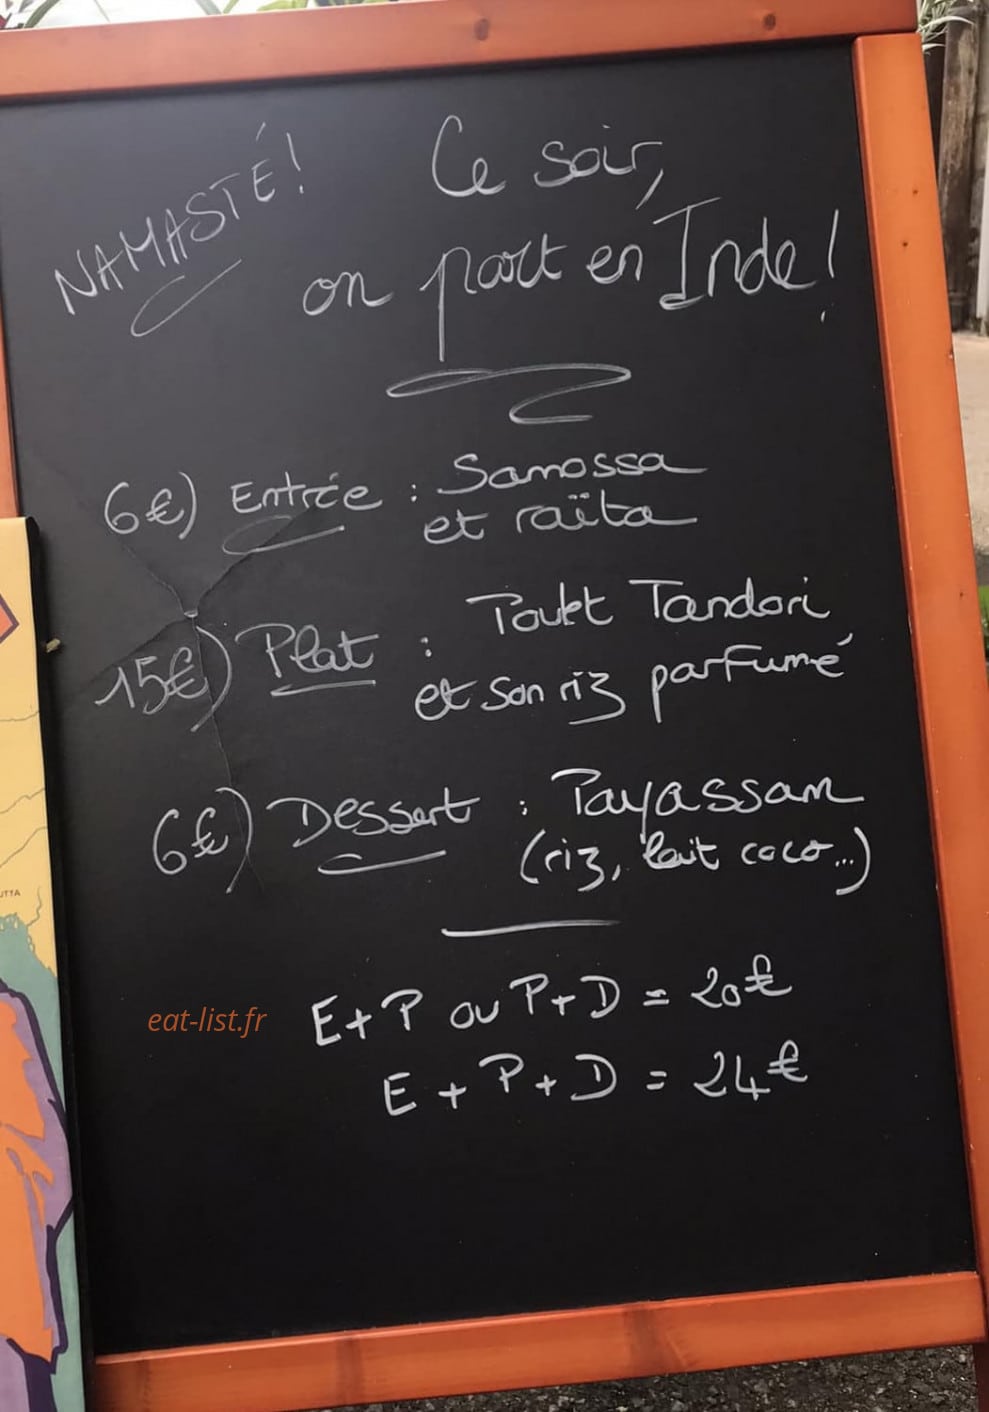 NAMASTÉ!
Ce soir,
on part en Inde!
6€) Entrée : Samossa
et raïta
15€) Plat : Poulet Tandori
et son riz parfumé
6€) Dessert : Payassam
(riz, lait coco...)
E+P ou P+D = 20€
E + P + D = 24€
eat-list.fr
UTTA